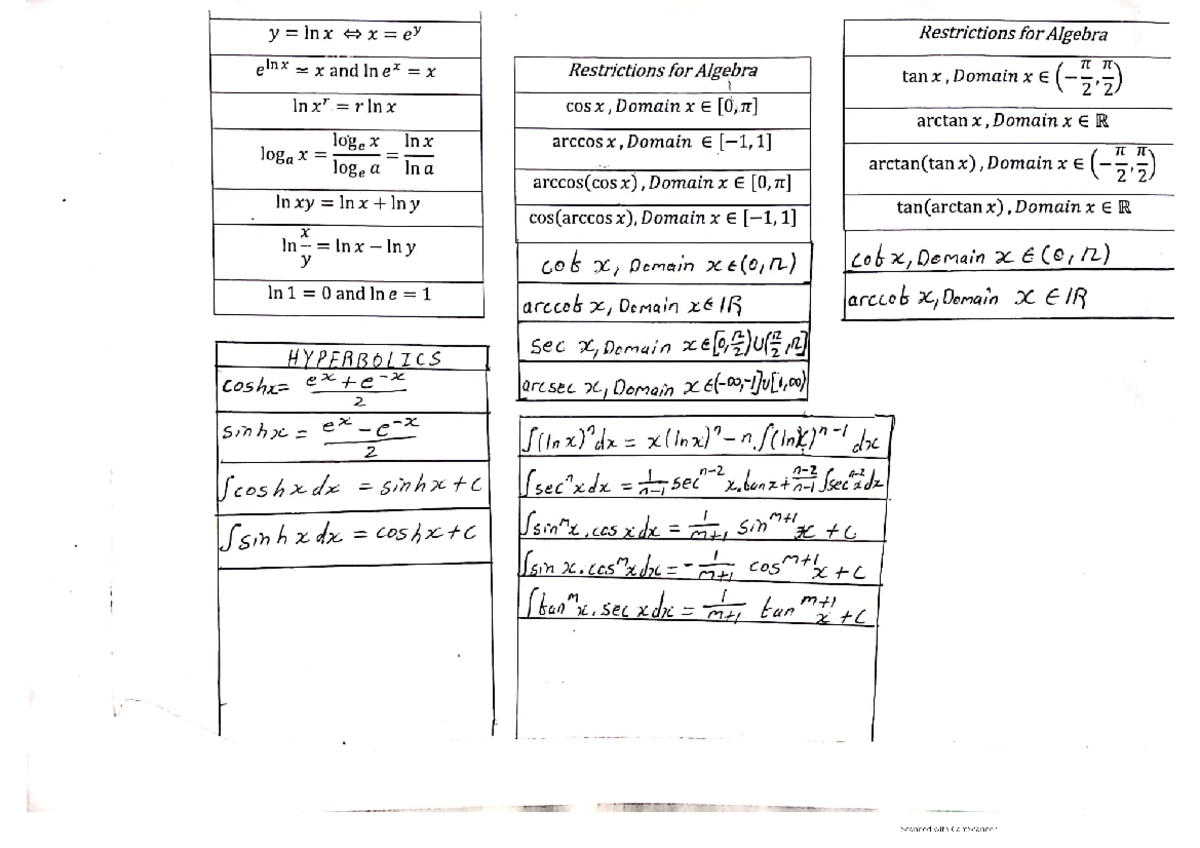 y = ln x ⇔ x = e^y
e^{ln x} = x and ln e^x = x
ln x^r = r ln x
log_a x = log_e x / log_e a = ln x / ln a
ln xy = ln x + ln y
ln x/y = ln x − ln y
ln 1 = 0 and ln e = 1
HYPERBOLICS
coshx = (e^x + e^{-x}) / 2
sinhx = (e^x − e^{-x}) / 2
∫coshx dx = sinhx + C
∫sinhx dx = coshx + C
Restrictions for Algebra
cos x , Domain x ∈ [0, π]
arccos x , Domain ∈ [−1, 1]
arccos(cos x) , Domain x ∈ [0, π]
cos(arccos x), Domain x ∈ [−1, 1]
cot x, Domain x∈(0,π)
arccot x, Domain x∈ℝ
sec x, Domain x∈[0,π/2)∪(π/2,π]
arcsec x, Domain x∈(-∞,-1]∪[1,∞)
∫(ln x)^n dx = x(ln x)^n − n.∫(lnx)^{n-1} dx
∫sec^n x dx = 1/(n-1) sec^{n-2} x.tan x + (n-2)/(n-1) ∫sec^{n-2} x dx
∫sin^m x.cos x dx = 1/(m+1) sin^{m+1} x + C
∫sin x.cos^m x dx = - 1/(m+1) cos^{m+1} x + C
∫tan^m x.sec x dx = 1/(m+1) tan^{m+1} x + C
Restrictions for Algebra
tan x , Domain x ∈ (−π/2, π/2)
arctan x , Domain x ∈ ℝ
arctan(tan x) , Domain x ∈ (−π/2, π/2)
tan(arctan x) , Domain x ∈ ℝ
cot x, Domain x ∈ (0,π)
arccot x, Domain x ∈ ℝ
Scanned with CamScanner